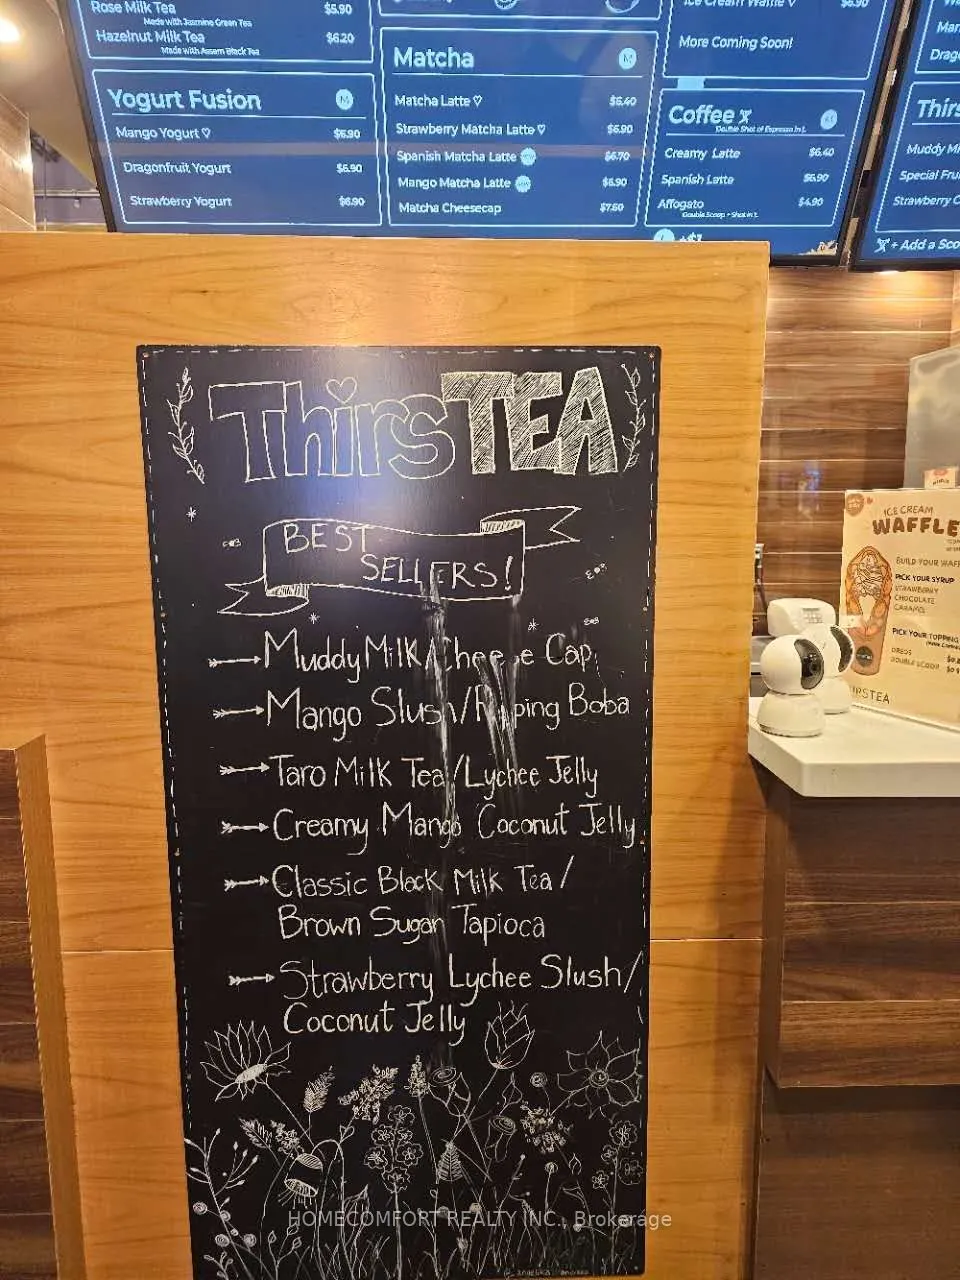 Rose Milk Tea $5.90
Made with Jasmine Green Tea
Hazelnut Milk Tea $6.20
Made with Assam Black Tea
Yogurt Fusion M
Mango Yogurt ♡ $6.90
Dragonfruit Yogurt $6.90
Strawberry Yogurt $6.90
Matcha M
Matcha Latte ♡ $6.40
Strawberry Matcha Latte ♡ $6.90
Spanish Matcha Latte $6.70
Mango Matcha Latte $6.90
Matcha Cheesecap $7.60
Ice Cream Waffle ♡ $6.90
More Coming Soon!
Coffee
Double Shot of Espresso in L
Creamy Latte $6.40
Spanish Latte $6.90
Affogato $4.90
Double Scoop + Shot in L
L +$1
Thirs
Muddy Mi
Special Fru
Strawberry C
+ Add a Sco
ThirsTEA
BEST
SELLERS!
Muddy Milk/Cheese Cap
Mango Slush/Popping Boba
Taro Milk Tea/Lychee Jelly
Creamy Mango Coconut Jelly
Classic Black Milk Tea/
Brown Sugar Tapioca
Strawberry Lychee Slush/
Coconut Jelly
ICE CREAM
WAFFLE
BUILD YOUR WAFF
PICK YOUR SYRUP
STRAWBERRY
CHOCOLATE
CARAMEL
PICK YOUR TOPPING
OREOS
DOUBLE SCOOP
IRSTEA
HOMECOMFORT REALTY INC., Brokerage